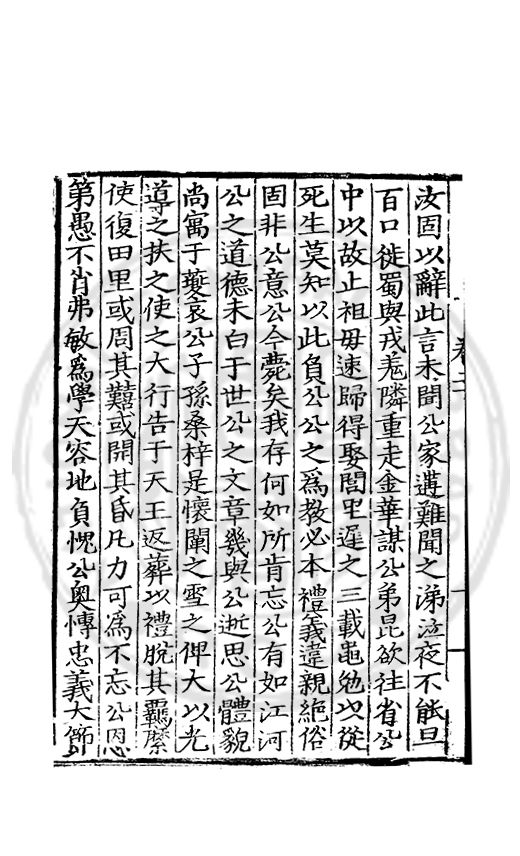 汝固以辭此言未聞公家遘難聞之涕泣夜不能旦
百口徙蜀與戎羗隣重走金華謀公弟昆欲往省公
中以故止祖毋速歸得娶閭里遲之三載黽勉以從
死生莫知以此負公公之爲教必本禮義違親絶俗
固非公意公今薨矣我存何如所肯忘公有如江河
公之道德未白于世公之文章幾與公逝思公體貌
尚寓于夔哀公子孫桑梓是懷闡之雪之俾大以光
導之扶之使之大行告于天王返葬以禮脫其羈縻
使復田里或周其囏或開其昏凡力可爲不忘公恩
第愚不肖弗敏爲學天容地負愧公奥愽忠義大節